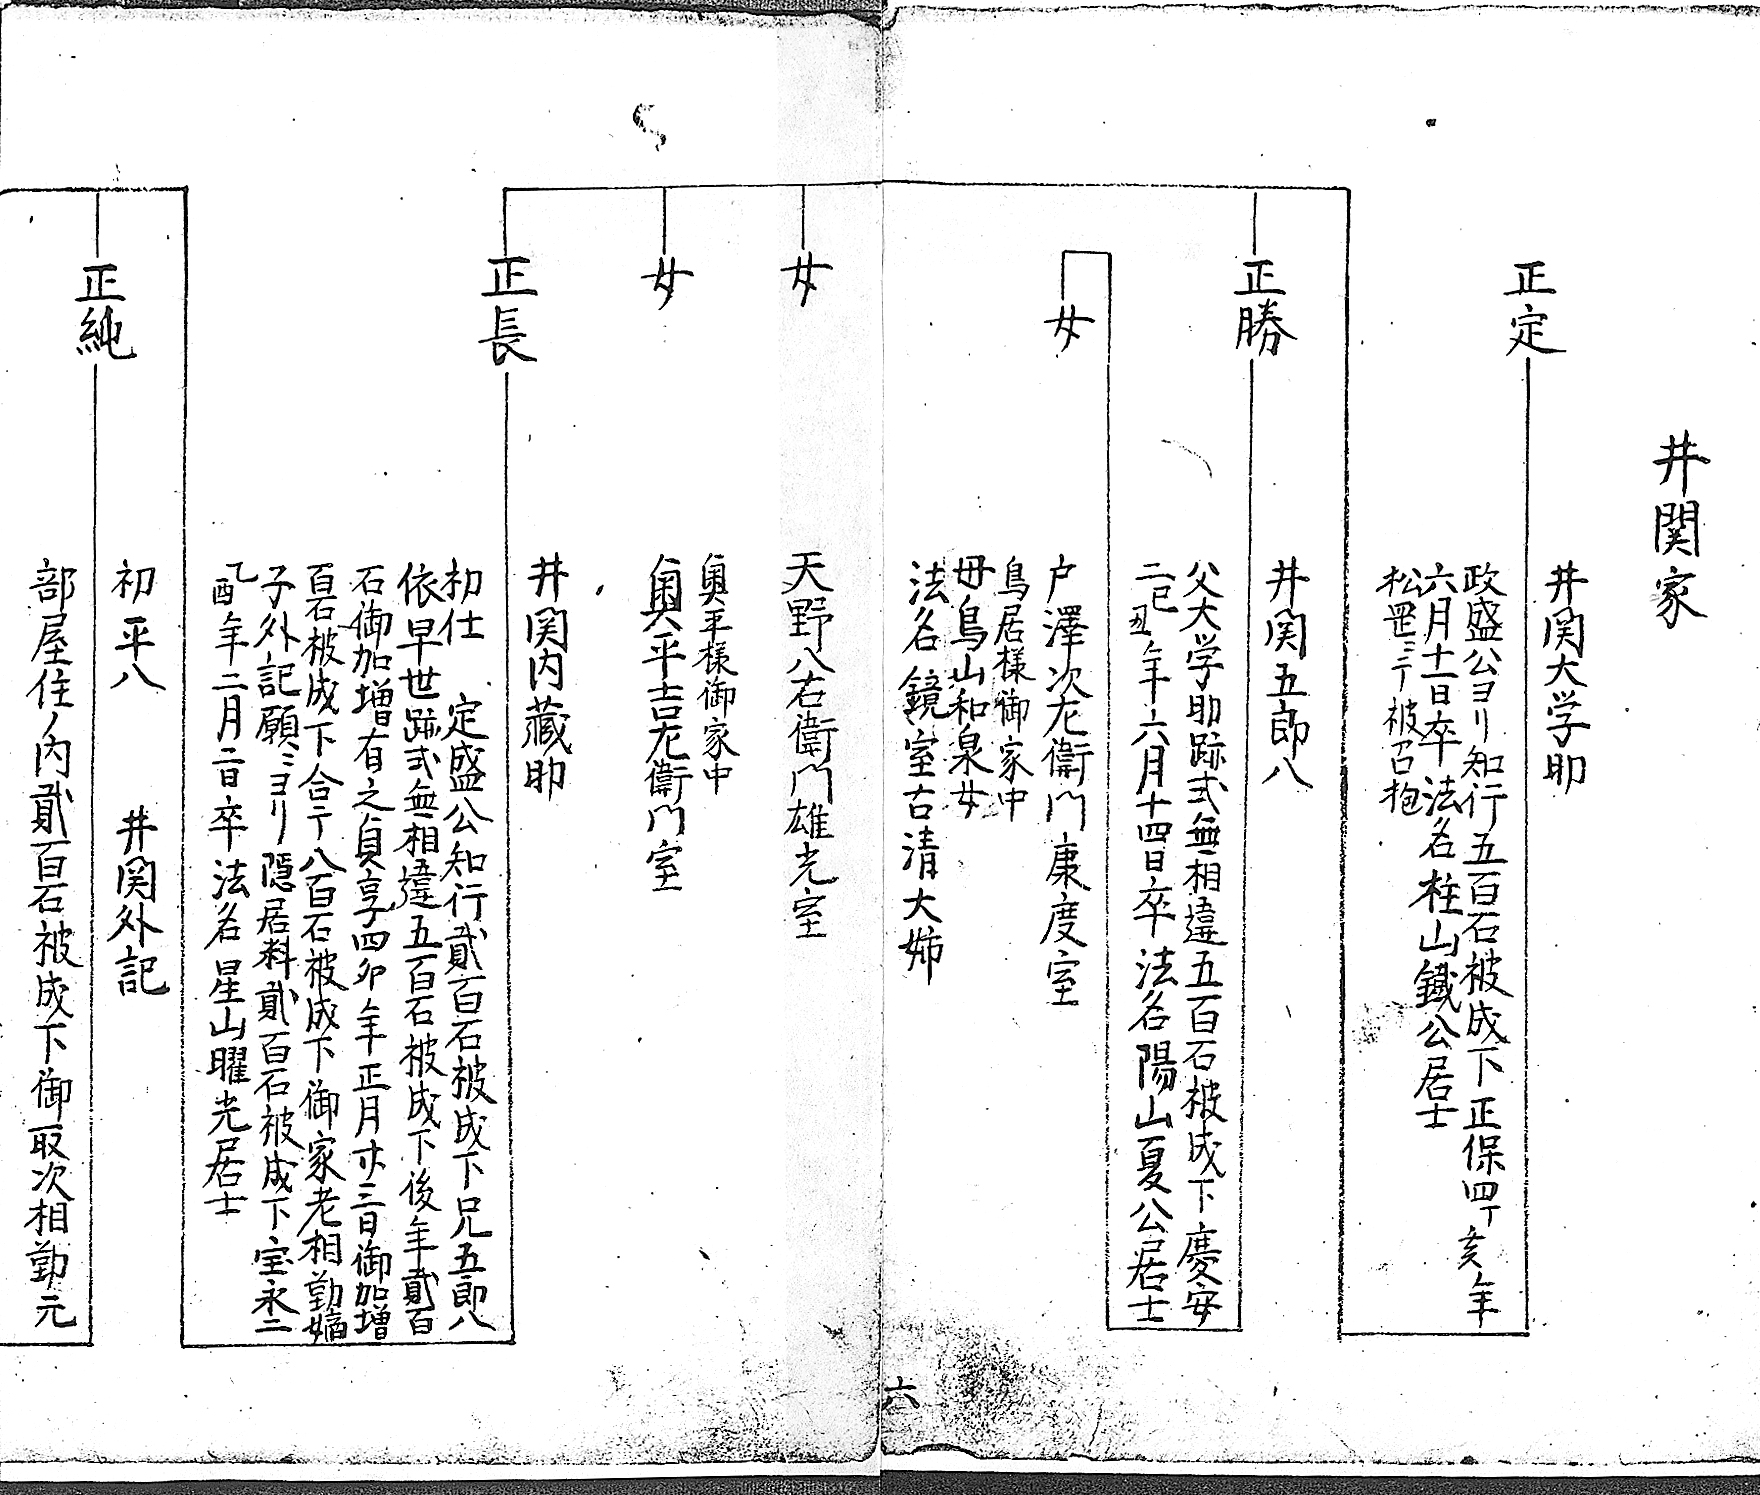 井関家
正定
井関大学助
政盛公ヨリ知行五百石被成下正保四丁亥年
六月十一日卒法名柱山鐵公居士
松罡ニテ被召抱
正勝
井関五郎八
父大学助跡式無相違五百石被成下慶安
二己丑年六月十四日卒法名陽山夏公居士
女
戸澤次左衛門康度室
鳥居様御家中
母鳥山和泉女
法名鏡室古清大姉
女
天野八右衛門雄光室
女
奥平様御家中
奥平吉左衛門室
正長
井関内蔵助
初仕 定盛公知行貳百石被成下兄五郎八
依早世跡式無相違五百石被成下後年貳百
石御加増有之貞享四卯年正月廿三日御加増
百石被成下合テ八百石被成下御家老相勤嫡
子外記願ニヨリ隠居料貳百石被成下宝永二
乙酉年二月二日卒法名星山曜光居士
正純
初平八 井関外記
部屋住ノ内貳百石被成下御取次相勤元
六